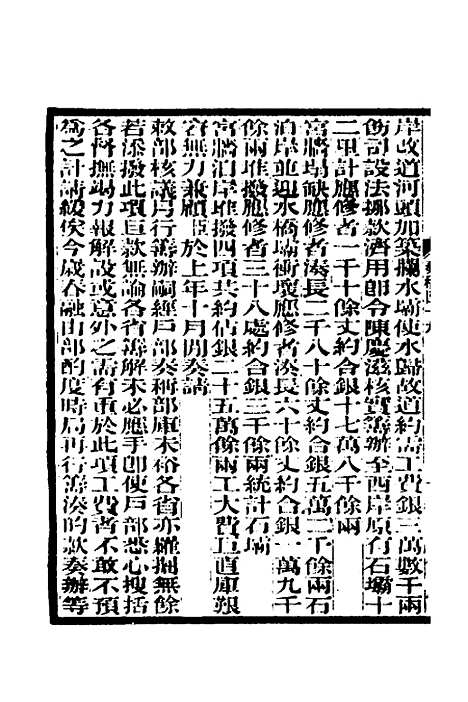 岸改道河頭加築攔水壩使水歸故道約需工費銀三萬數千兩
飭司設法挪款濟用即令陳慶滋核實籌辦至西岸原有石壩十
二里計應修者一千十餘丈約合銀十七萬八千餘兩
富牆塌缺應修者湊長二千八十餘丈約合銀五萬二千餘兩石
泊岸並迎水橋壩衝塌應修者湊長六十餘丈約合銀一萬九千
餘兩堆撥應修者三十八處約合銀三千餘兩統計石壩
富牆泊岸堆撥四項共約估銀二十五萬餘兩工大費直庫艱
窘無力兼顧臣於上年十月間奏請
敕部核議另行籌辦嗣經戶部奏稱部庫未裕各省亦羅掘無餘
若添撥此項巨款無論各省籌解未必應手即使戶部悉心搜括
各督撫竭力報解設或意外之需有重於此項工費者不敢不預
為之計請緩俟今歲春融由部酌度時局再行籌湊的款奏辦等